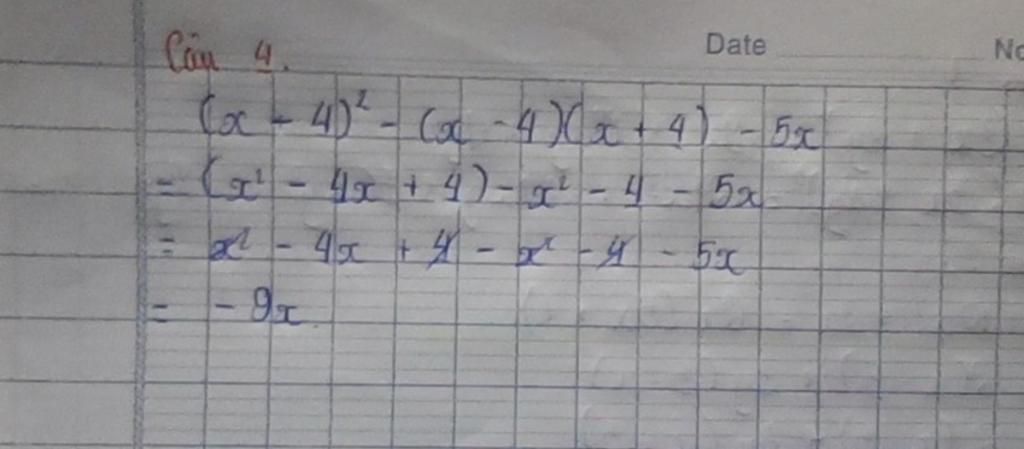 Câu 4.
Date No
(x - 4)² - (x - 4)(x + 4) - 5x
= (x² - 4x + 4) - x² - 4 - 5x
= x² - 4x + 4 - x² - 4 - 5x
= - 9x